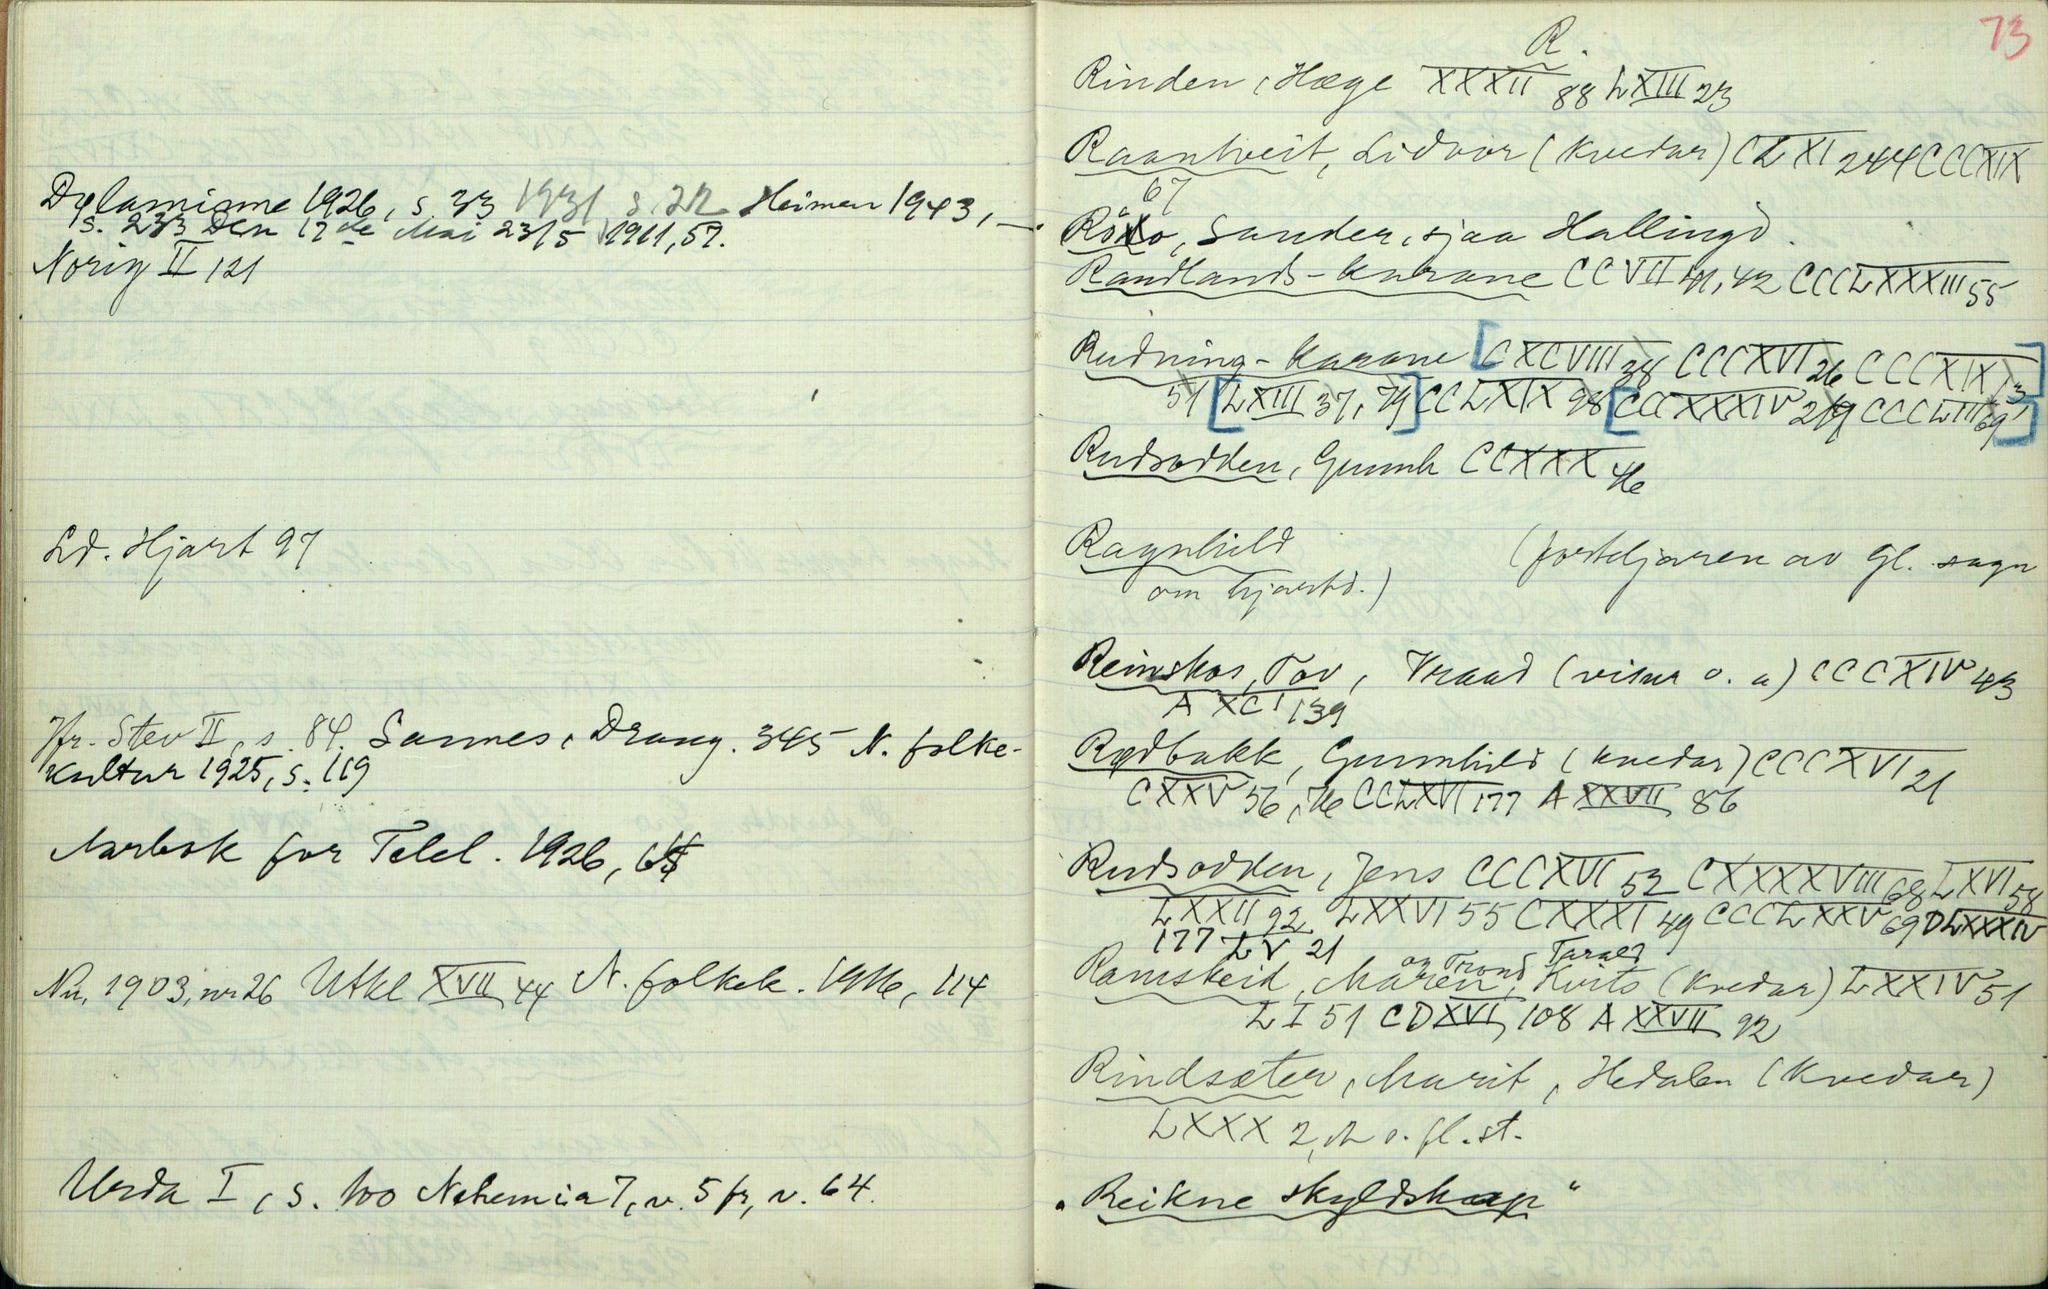 Dølaminne 1926, s. 33 1931 s. 22 Heimen 1943,
s. 233 Den 17de Mai 23/5 1911, 57.
Norig II 121
Ld. Hjart 97
Jfr. Stev II, s. 84. Sannes, Draug. 345 N. folke-
kultur 1925, s. 119
Aarbok for Telel. 1926,
Nu, 1903, nr 26 Utkl XVII 44 N. folkek. 1916, 114
Urda I, s. 100 Nehemia 7, v. 5 fr, v. 64.
73
R.
Rinden, Hæge XXXII 88 LXIII 23
Raantveit, Lidvor (kvedar) CLXI 244 CCCXIX
67
Röto, Sander, sjaa Hallingd.
Raudlands-karane CCVII 41, 42 CCCLXXXIII 55
Rudning-karane [CXCVIII 38 CCCXVI 26 CCCXIX 13]
51 [LXIII 37, 79] CCLXIX 98 [CCCXXXIV 219 CCCLIII 69]
Rudsodden, Gunnh CCXXX 46
Ragnhild (forteljaren av Gl. sagn
om Hjartd.)
Reinskos, Tov, Vraad (visur o. a) CCCXIV 43
A XCI 139
Rødbakk, Gunnhild (kvedar) CCCXVI 21
CXXV 56, 76 CCLXVI 177 A XXVII 86
Rudsodden, Jens CCCXVI 52 CXXXXVIII 68 LXVI 58
LXXII 92 LXXVI 55 CXXXI 49 CCCLXXV 69 DLXXXIV
177 LV 21
og Trond Tarald
Ramskeid, Maren, Kvito (kvedar) LXXIV 51
LI 51 CDXVI, 108 A XXVII 92
Rindsæter, Marit, Hedalen (kvedar)
LXXX 2, o. fl. st.
"Reikne skyldskap"